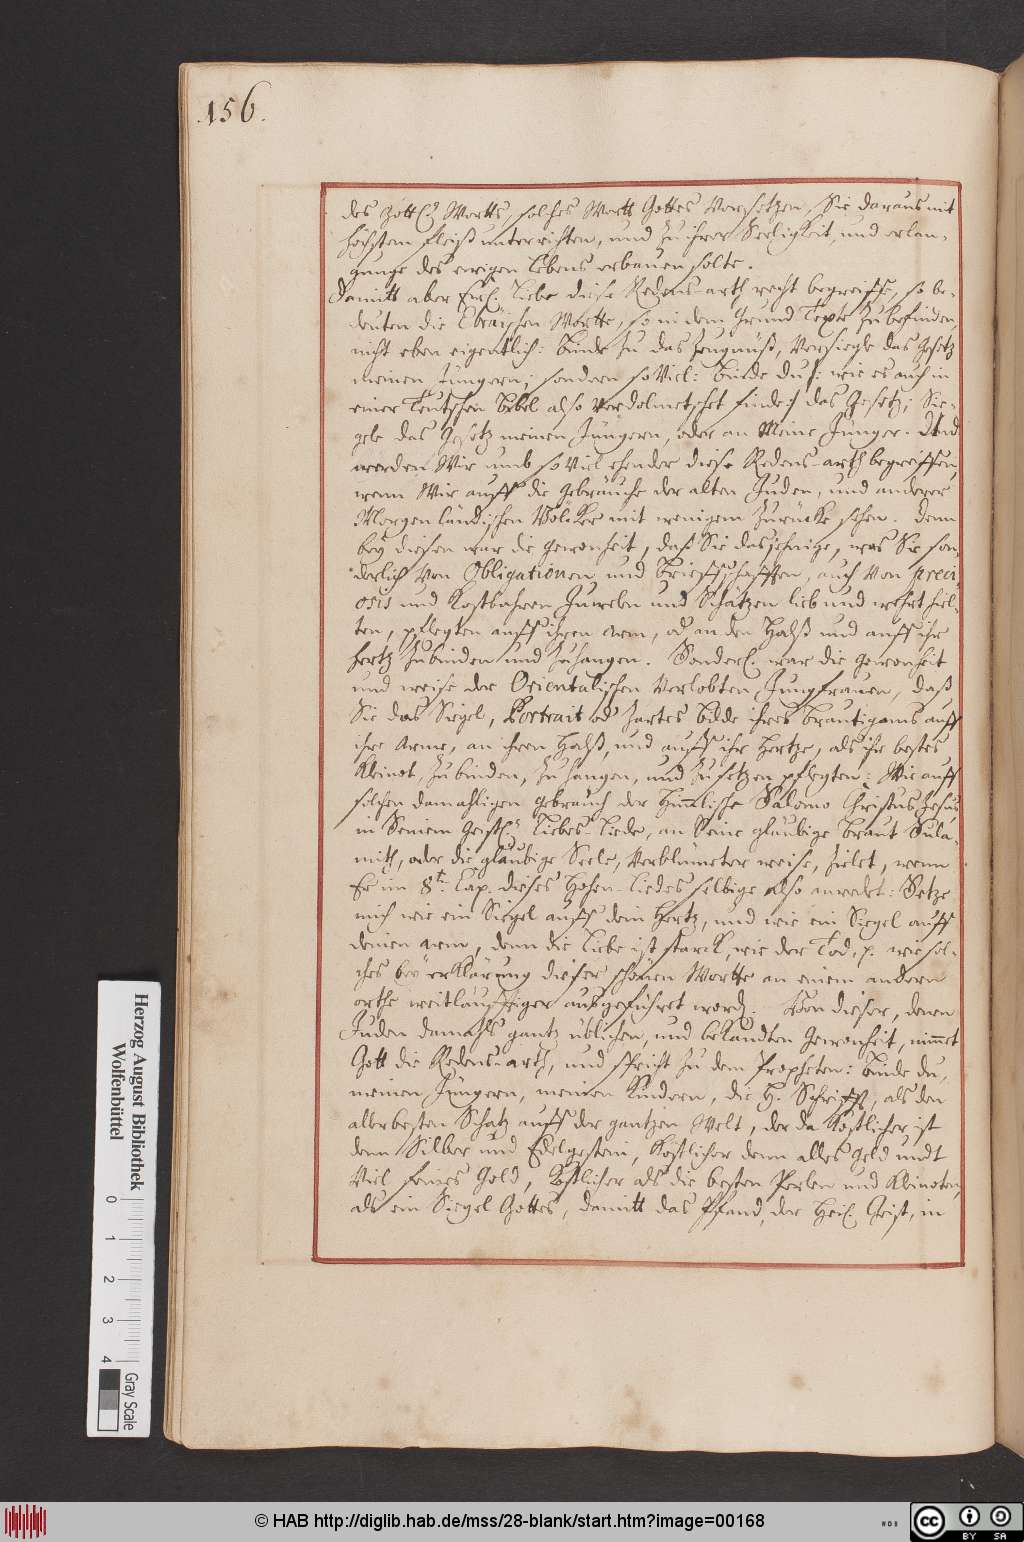 156.
des Göttl. Wortts, solches Wortt Gottes Vorsetzen, Sie daraus mit
höchstem fleiß unterrichten, und zu ihrer Seeligkeit, und erlan-
gunge des ewigen Lebens erbauen solte.
Damitt aber Eur. Liebe diese Redens-arth recht begreiffe, so be-
deuten die Ebräischen Wortte, so in dem Grund Text zu befinden,
nicht eben eigentlich: Binde zu das Zeugnüß, Versiegle das Gesetz
meinen Jüngern; sondern so Viel: Binde du: wie es auch in
einer Teutschen Bibel also verdolmetschet finde: das Gesetz; Sie-
gele das Gesetz meinen Jüngern, oder an Meine Jünger. Und
werden Wir umb so Viel ehender diese Redens-arth begreiffen,
wenn Wir auff die Gebräuche der alten Juden, und anderer
Morgenländischen Völcker mit wenigem zurücke sehen. Denn
bey diesen war die Gewonheit, daß Sie dasjenige, was Sie son-
derlich Von Obligationen und Briefschafften, auch Von preci-
osis und Kostbahren Juwelen und Schätzen lieb und wehrt hiel-
ten, pflegten auff ihren Arm, od. an den Halß und auff ihr
Hertz zubinden und zuhangen. Sonderl. war die Gewonheit
und weise der Orientalischen Verlobten Jungfrauen, daß
Sie das Siegel, Portrait od. zartes Bilde ihres Brautigams auff
ihre Arme, an ihren Halß, und auff ihr Hertze, als ihr bestes
Kleinot, zu binden, zu hangen, und zu setzen pflegten: Wie auff
solchen damahligen Gebrauch der Himlische Salomo Christus Jesus,
in Seinem Geistl. Liebes-Liede, an Seine gläubige Braut Sula-
mith, oder die gläubige Seele, Verblümeter weise, zielet, wenn
Er im 8ten Cap. dieses Hohen-Liedes selbige also anredet: Setze
mich wie ein Siegel auff dein Hertz, und wie ein Siegel auff
deinen Arm, denn die Liebe ist starck, wie der Tod, p. wie sol-
ches bey erklärung dieser schönen Wortte an einem andern
orthe weitläufftiger ausgeführet word. Von dieser, denen
Juden damahls gantz üblichen, und bekandten Gewonheit, nimmet
Gott die Redens-arth, und spricht zu dem Propheten: Binde du,
meinen Jüngern, meinen Kindern, die H. Schrifft, als den
allerbesten Schatz auff der gantzen Welt, der da köstlicher ist
denn Silber und Edelgestein, köstlicher denn alles Geld undt
Viel feines Gold, köstlicher als die besten Perlen und Kleinoten,
als ein Siegel Gottes, damitt das Pfand, der Heil. Geist, in
Herzog August Bibliothek
Wolfenbüttel
0 1 2 3 4
Gray Scale
© HAB http://diglib.hab.de/mss/28-blank/start.htm?image=00168
WDB
cc BY SA